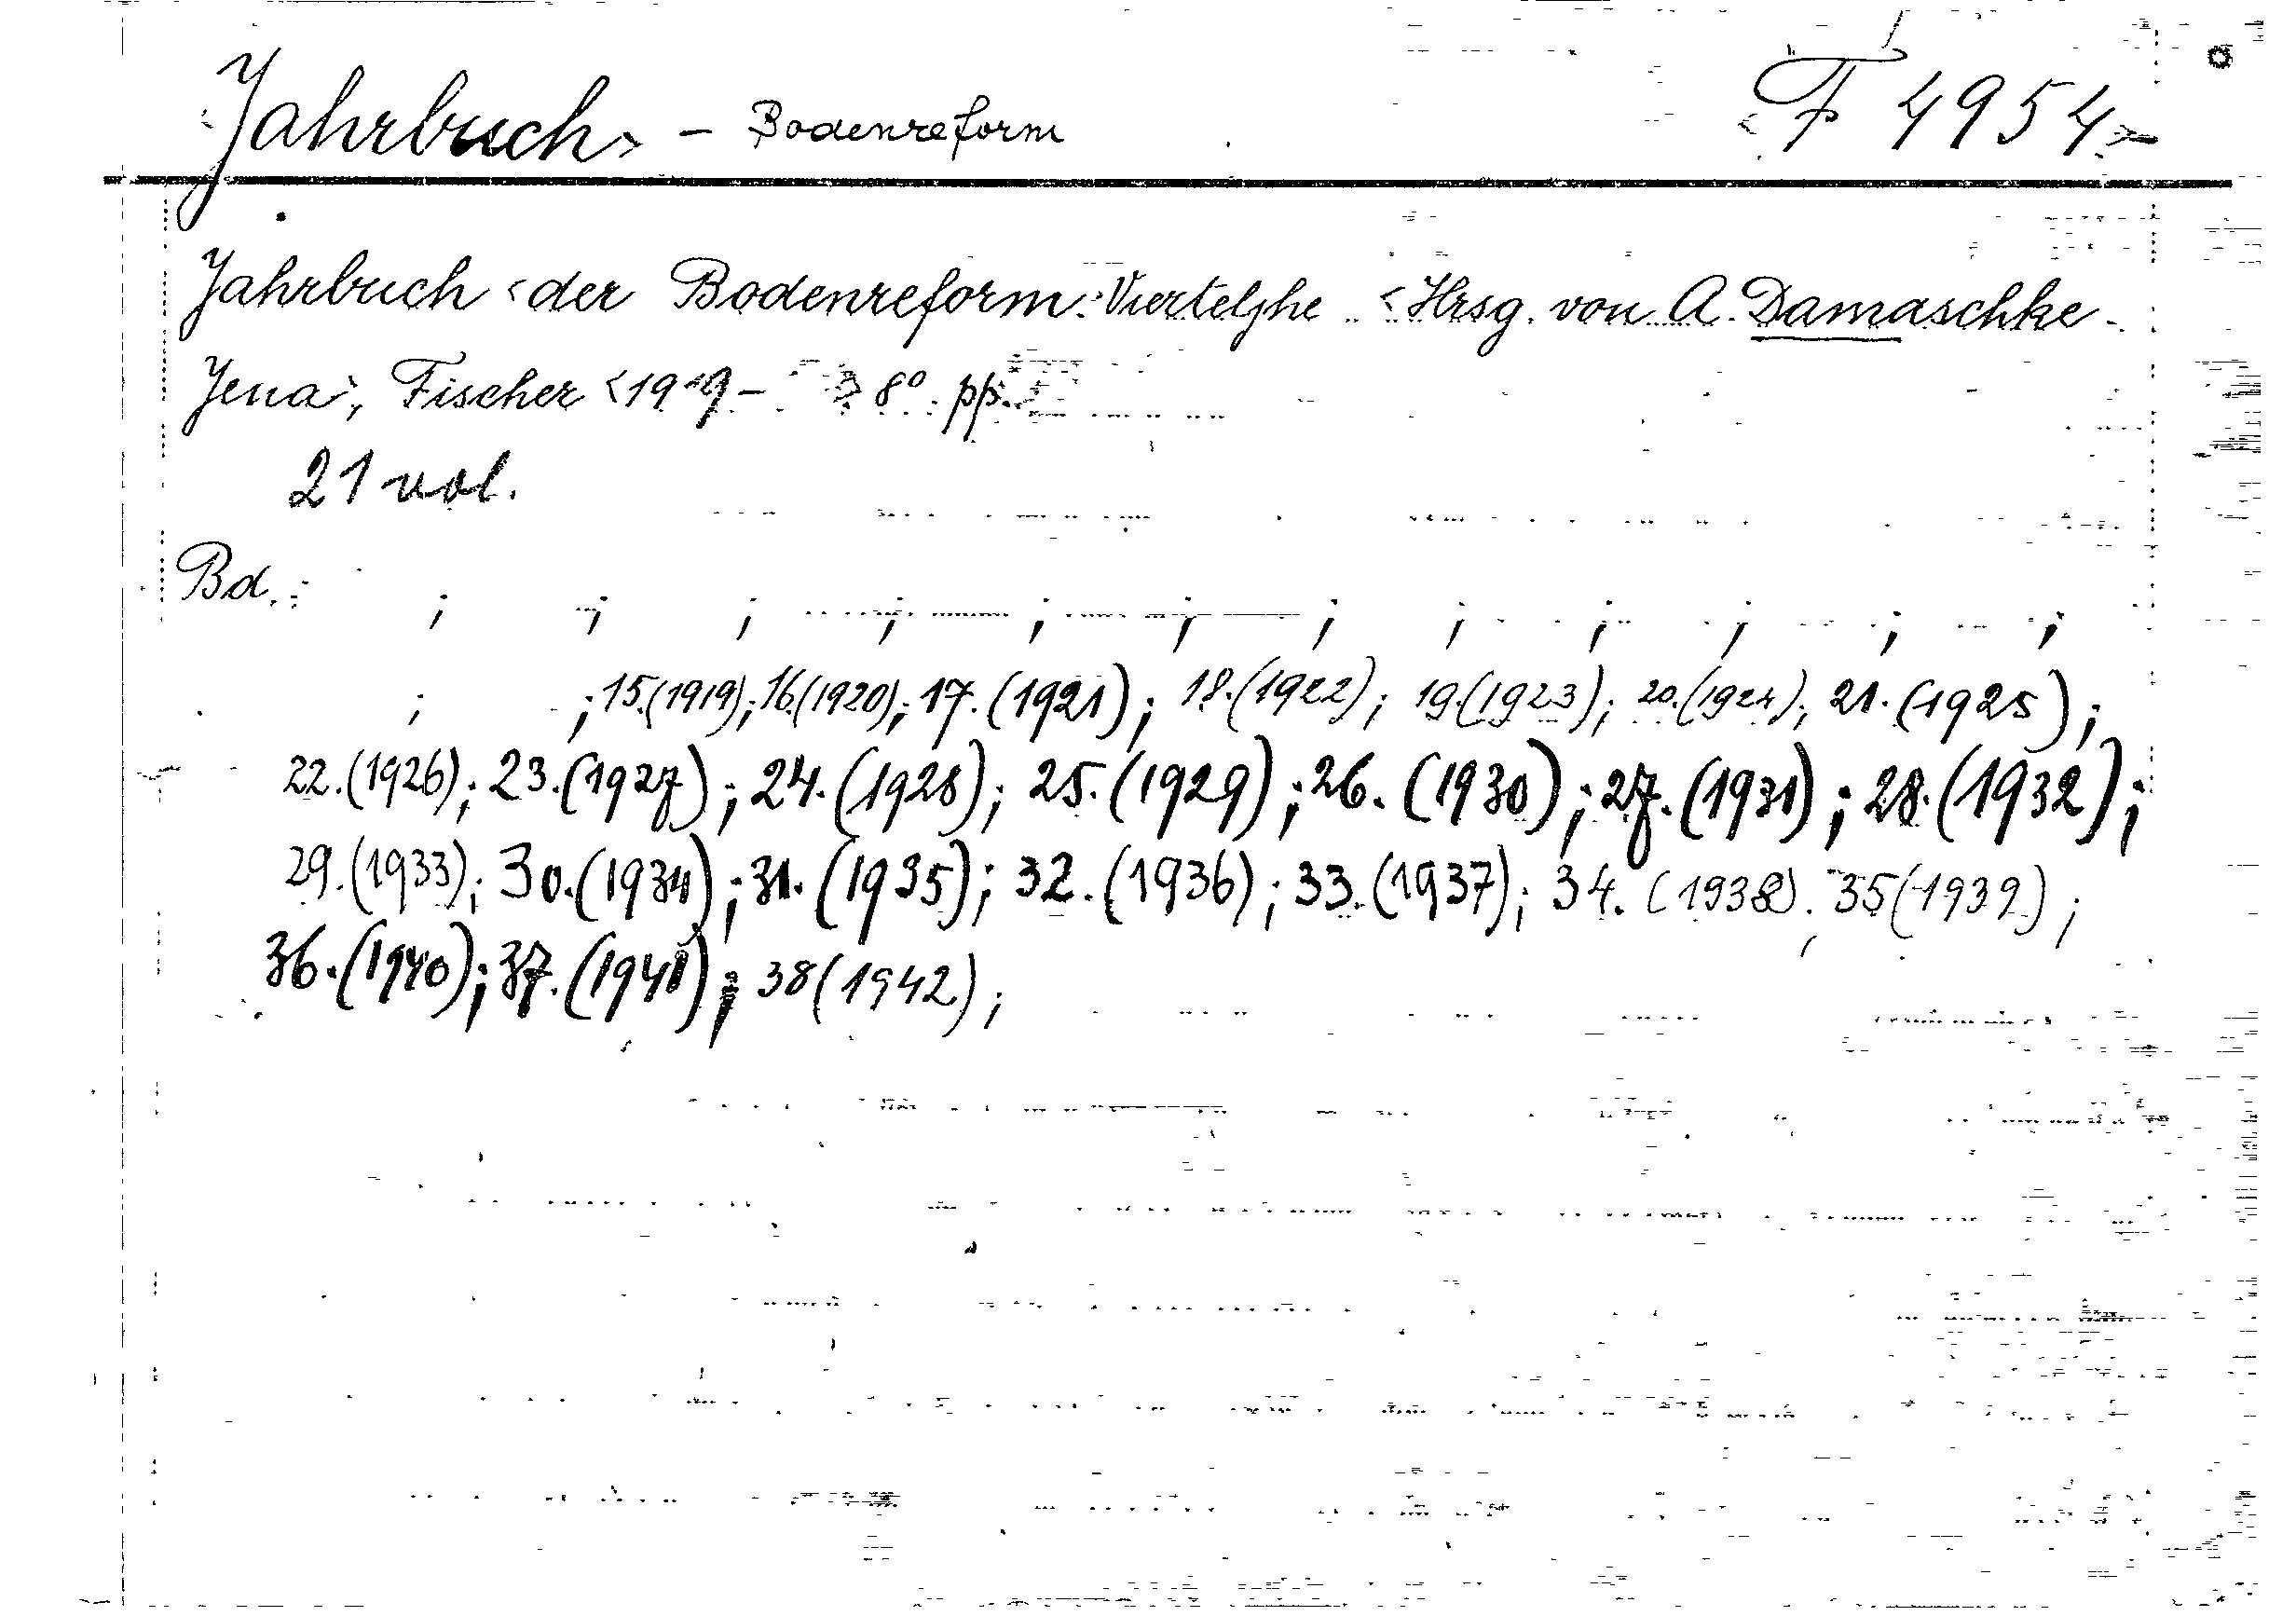 Jahrbuch - Bodenreform F 4954
Jahrbuch der Bodenreform. Viertelјhe Hrsg. von A. Damaschke
Jena, Fischer 1919- 8° pp.
21 vol.
Bd.: ; ; ; ; ; ; ; ; ; ; ; ;
; ; 15.(1919); 16.(1920); 17.(1921); 18.(1922); 19.(1923); 20.(1924); 21.(1925);
22.(1926); 23.(1927); 24.(1928); 25.(1929); 26.(1930); 27.(1931); 28.(1932);
29.(1933); 30.(1934); 31.(1935); 32.(1936); 33.(1937); 34.(1938), 35(1939);
36.(1940); 37.(1941); 38(1942);